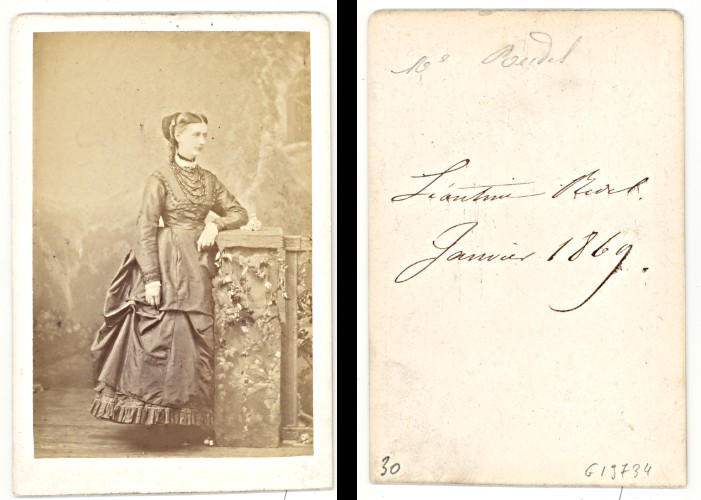 Me Riedel
Léontine Riedel.
Janvier 1869.
30
G19734